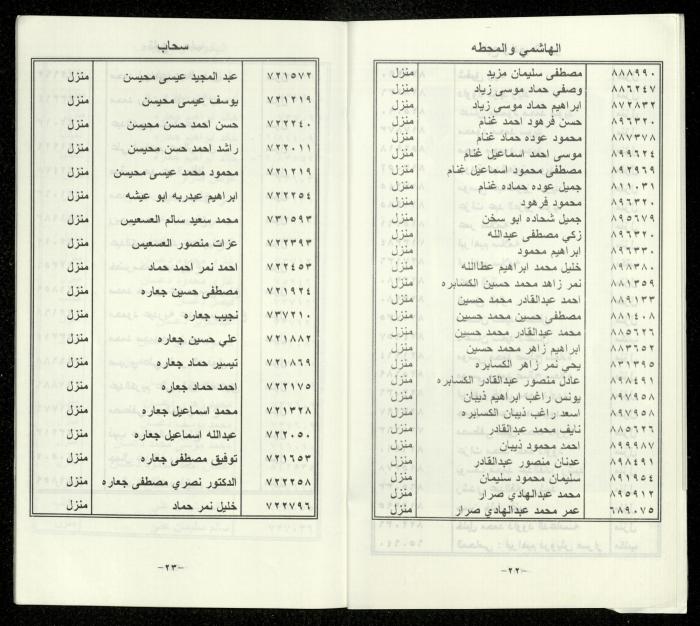 الهاشمي والمحطه
٨٨٨٩٩٠ مصطفى سليمان مزيد منزل
٨٨٦٢٤٧ وصفي حماد موسى زياد منزل
٨٧٢٨٣٢ ابراهيم حماد موسى زياد منزل
٨٩٦٣٢٠ حسن فرهود احمد غنام منزل
٨٨٧٣٧٨ محمود عوده حماد غنام منزل
٨٩٩٦٢٤ موسى احمد اسماعيل غنام منزل
٨٩٢٩٦٩ مصطفى محمود اسماعيل غنام منزل
٨١١٠٣١ جميل عوده حماده غنام منزل
٨٩٦٣٢٠ محمود فرهود منزل
٨٩٥٦٧٩ جميل شحاده ابو سخن منزل
٨٩٦٣٢٠ زكي مصطفى عبدالله منزل
٨٩٦٣٣٠ ابراهيم محمود منزل
٨٩٨٣٨٠ خليل محمد ابراهيم عطاالله منزل
٨٨١٣٥٩ نمر زاهد محمد حسين الكسابره منزل
٨٨٩١٣٣ احمد عبدالقادر محمد حسين منزل
٨٨١٤٠٨ مصطفى حسين محمد حسين منزل
٨٨٥٦٢٦ محمد عبدالقادر محمد حسين منزل
٨٨٣٦٥٢ ابراهيم زاهر محمد حسين منزل
٨٣١٣٩٥ يحي نمر زاهر الكسابره منزل
٨٩٨٤٩١ عادل منصور عبدالقادر الكسابره منزل
٨٩٧٩٥٨ يونس راغب ابراهيم ذيبان منزل
٨٩٧٩٥٨ اسعد راغب ذيبان الكسابره منزل
٨٨٥٦٢٦ نايف محمد عبدالقادر منزل
٨٩٩٩٨٧ احمد محمود ذيبان منزل
٨٩٨٤٩١ عدنان منصور عبدالقادر منزل
٨٩١٩٥٤ سليمان محمود سليمان منزل
٨٩٥٩١٢ محمد عبدالهادي صرار منزل
٦٨٩٠٧٥ عمر محمد عبدالهادي صرار منزل
-٢٢-
سحاب
٧٢١٥٧٢ عبد المجيد عيسى محيسن منزل
٧٢١٢١٩ يوسف عيسى محيسن منزل
٧٢٢٢٤٠ حسن احمد حسن محيسن منزل
٧٢٢٠١١ راشد احمد حسن محيسن منزل
٧٢١٢١٩ محمود محمد عيسى محيسن منزل
٧٢٢٢٥٤ ابراهيم عبدربه ابو عيشه منزل
٧٣١٥٩٣ محمد سعيد سالم العسعيس منزل
٧٢٢٣٩٣ عزات منصور العسعيس منزل
٧٢٢٤٥٣ احمد نمر احمد حماد منزل
٧٢١٩٢٤ مصطفى حسين جعاره منزل
٧٣٧٢١٠ نجيب جعاره منزل
٧٢١٨٨٢ علي حسين جعاره منزل
٧٢١٨٦٩ تيسير حماد جعاره منزل
٧٢٢١٧٥ احمد حماد جعاره منزل
٧٢١٣٢٨ محمد اسماعيل جعاره منزل
٧٢٢٠٥٠ عبدالله اسماعيل جعاره منزل
٧٢١٦٥٣ توفيق مصطفى جعاره منزل
٧٢٢٢٥٨ الدكتور نصري مصطفى جعاره منزل
٧٢٢٧٩٦ خليل نمر حماد منزل
-٢٣-